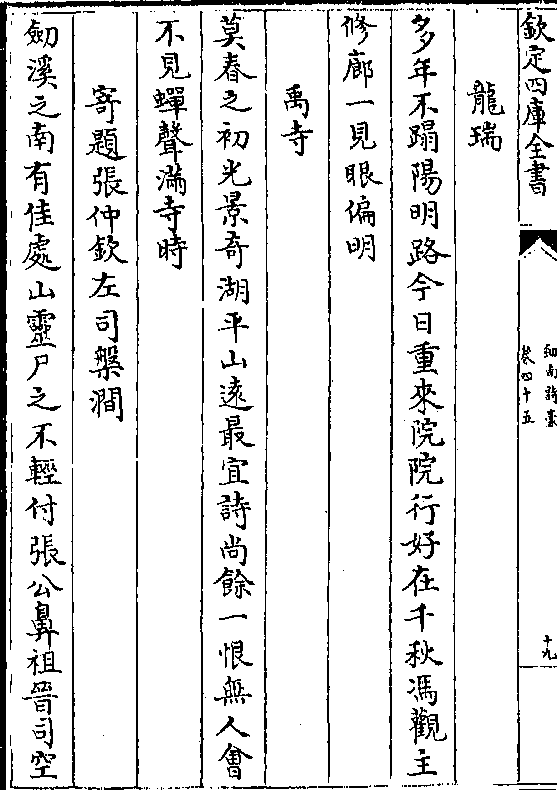 欽定四庫全書
劍南詩藁
卷四十五
十九
龍瑞
多年不蹋陽明路今日重來院院行好在千秋馮觀主
修廊一見眼偏明
禹寺
莫春之初光景奇湖平山遠最宜詩尚餘一恨無人㑹
不見蟬聲滿寺時
寄題張仲欽左司槃澗
劒溪之南有佳處山靈尸之不輕付張公鼻祖晉司空